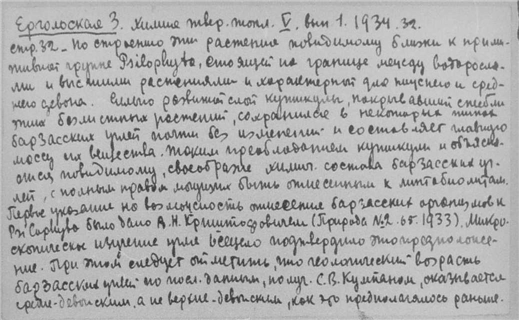 Ергольская З. Химия твер. топл. V, вып 1. 1934. 32.
стр. 32 – по строению эти растения повидимому близки к прими-
тивной группе Psilophyta, стоящей на границе между водоросля-
ми и высшими растениями и характерной для нижнего и сред-
него девона. Сильно развитый слой кутикулы, покрывавший стебли
этих безлистных растений, сохранился в некоторых типах
барзасских углей почти без изменений и составляет главную
массу их вещества. Таким преобладанием кутикулы и объясня-
ется повидимому, своеобразие химич. состава барзасских уг-
лей, с полным правом могущих быть отнесенными к липтобиолитам.
Первое указание на возможность отнесения барзасских организмов к
Psilophyta было дано А.Н. Криштофовичем (Природа №2. 65. 1933). Микро-
скопическое изучение угля всецело подтвердило это предположе-
ние. При этом следует отметить, что геологический возраст
барзасских углей по посл. данным, получ. С.В. Кумпаном, оказывается
средне-девонским, а не верхне-девонским, как это предполагалось раньше.